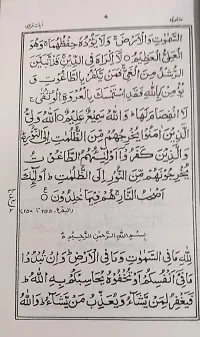 السَّمٰوٰتِ وَالْاَرْضَ وَلَا يَـُٔوْدُهٗ حِفْظُهُمَا وَهُوَ
الْعَلِىُّ الْعَظِيْمُ لَآ اِكْرَاهَ فِى الدِّيْنِ قَدْ تَّبَيَّنَ
الرُّشْدُ مِنَ الْغَىِّ فَمَنْ يَّكْفُرْ بِالطَّاغُوْتِ وَ
يُؤْمِنْ بِاللّٰهِ فَقَدِ اسْتَمْسَكَ بِالْعُرْوَةِ الْوُثْقٰى
لَا انْفِصَامَ لَهَا وَاللّٰهُ سَمِيْعٌ عَلِيْمٌ اَللّٰهُ وَلِىُّ
الَّذِيْنَ اٰمَنُوْا يُخْرِجُهُمْ مِّنَ الظُّلُمٰتِ اِلَى النُّوْرِ
وَالَّذِيْنَ كَفَرُوْٓا اَوْلِيٰٓـُٔهُمُ الطَّاغُوْتُ
يُخْرِجُوْنَهُمْ مِّنَ النُّوْرِ اِلَى الظُّلُمٰتِ اُولٰٓئِكَ
اَصْحٰبُ النَّارِ هُمْ فِيْهَا خٰلِدُوْنَ
بِسْمِ اللّٰهِ الرَّحْمٰنِ الرَّحِيْمِ
لِلّٰهِ مَا فِى السَّمٰوٰتِ وَمَا فِى الْاَرْضِ وَاِنْ تُبْدُوْا
مَا فِىْٓ اَنْفُسِكُمْ اَوْ تُخْفُوْهُ يُحَاسِبْكُمْ بِهِ اللّٰهُ
فَيَغْفِرُ لِمَنْ يَّشَآءُ وَيُعَذِّبُ مَنْ يَّشَآءُ وَاللّٰهُ